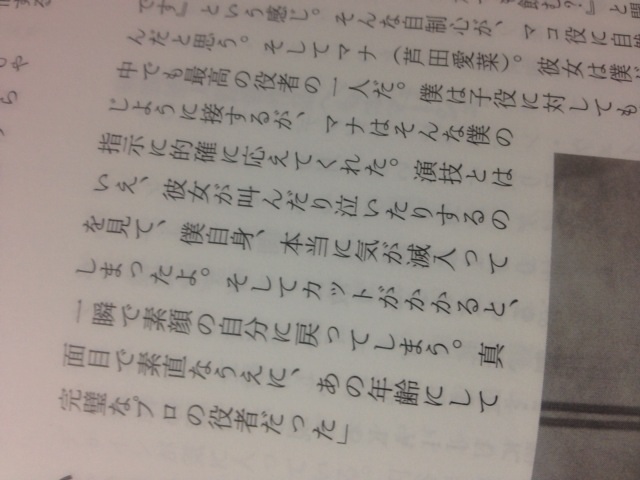 を飲む?』と
です』という感じ。そんな自制心が、マコ役に自
んだと思う。そしてマナ（芦田愛菜）。彼女は僕が
中でも最高の役者の一人だ。僕は子役に対しても
じように接するが、マナはそんな僕の
指示に的確に応えてくれた。演技とは
いえ、彼女が叫んだり泣いたりするの
を見て、僕自身、本当に気が滅入って
しまったよ。そしてカットがかかると、
一瞬で素顔の自分に戻ってしまう。真
面目で素直なうえに、あの年齢にして
完璧なプロの役者だった」